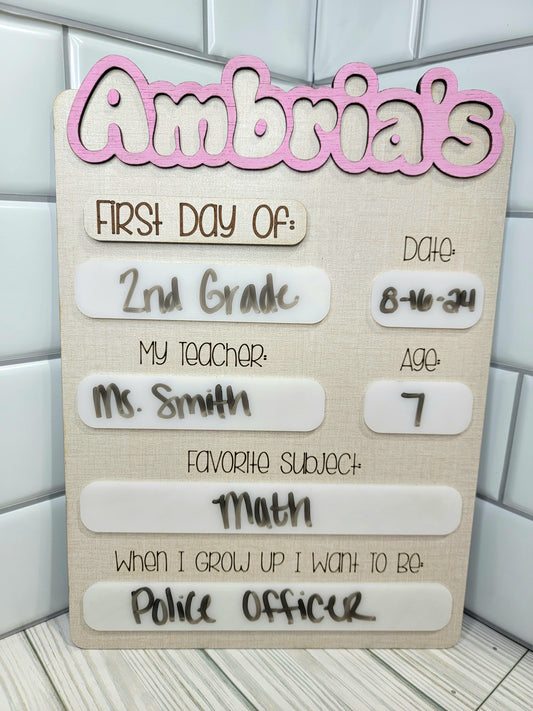 Ambria's
First Day Of:
Date:
2nd Grade
8-16-24
My Teacher:
Age:
Ms. Smith
7
Favorite Subject:
Math
When I Grow Up I Want To Be:
Police Officer